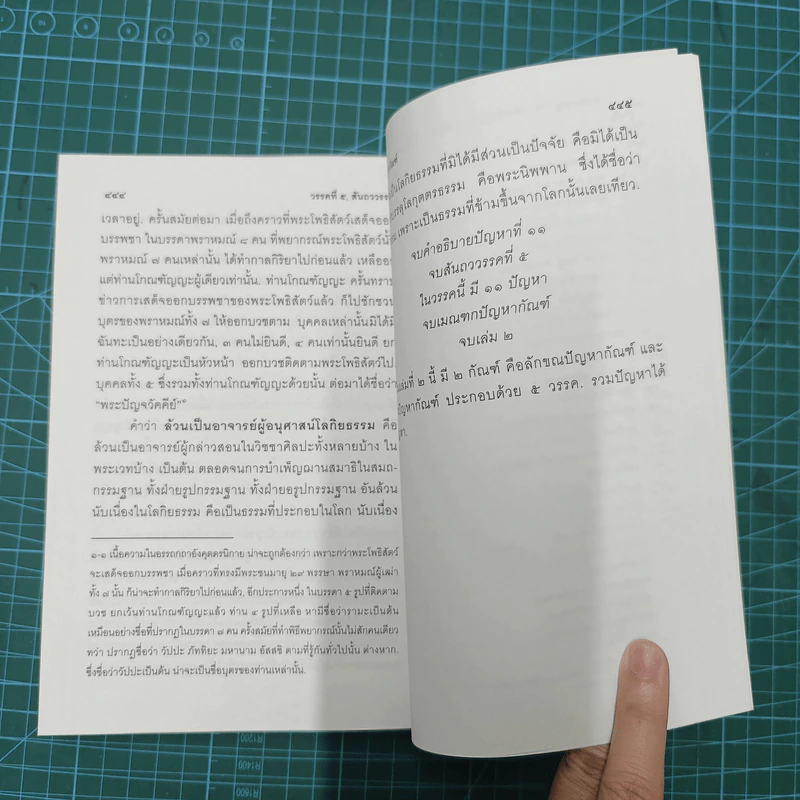 ๔๔๔ วรรคที่ ๕, สันถววรรค
เวลาอยู่. ครั้นสมัยต่อมา เมื่อถึงคราวที่พระโพธิสัตว์เสด็จออก
บรรพชา ในบรรดาพราหมณ์ ๘ คน ที่พยากรณ์พระโพธิสัตว์นั้น
พราหมณ์ ๗ คนเหล่านั้น ได้ทำกาลกิริยาไปก่อนแล้ว เหลืออยู่
แต่ท่านโกณฑัญญะผู้เดียวเท่านั้น. ท่านโกณฑัญญะ ครั้นทราบ
ข่าวการเสด็จออกบรรพชาของพระโพธิสัตว์แล้ว ก็ไปชักชวน
บุตรของพราหมณ์ทั้ง ๗ ให้ออกบวชตาม บุคคลเหล่านั้นมิได้มี
ฉันทะเป็นอย่างเดียวกัน, ๓ คนไม่ยินดี, ๔ คนเท่านั้นยินดี ยก
ท่านโกณฑัญญะเป็นหัวหน้า ออกบวชติดตามพระโพธิสัตว์ไป
บุคคลทั้ง ๕ ซึ่งรวมทั้งท่านโกณฑัญญะด้วยนั้น ต่อมาได้ชื่อว่า
“พระปัญจวัคคีย์”๑
คำว่า ล้วนเป็นอาจารย์ผู้อนุศาสน์โลกิยธรรม คือ
ล้วนเป็นอาจารย์ผู้กล่าวสอนในวิชชาศิลปะทั้งหลายบ้าง ใน
พระเวทบ้าง เป็นต้น ตลอดจนการบำเพ็ญฌานสมาธิในสมถ-
กรรมฐาน ทั้งฝ่ายรูปกรรมฐาน ทั้งฝ่ายอรูปกรรมฐาน อันล้วน
นับเนื่องในโลกิยธรรม คือเป็นธรรมที่ประกอบในโลก นับเนื่อง
๑-๑ เนื้อความในอรรถกถาอังคุตตรนิกาย น่าจะถูกต้องกว่า เพราะกว่าพระโพธิสัตว์
จะเสด็จออกบรรพชา เมื่อคราวที่ทรงมีพระชนมายุ ๒๙ พรรษา พราหมณ์ผู้เฒ่า
ทั้ง ๗ นั้น ก็น่าจะทำกาลกิริยาไปก่อนแล้ว, อีกประการหนึ่ง ในบรรดา ๕ รูปที่ติดตาม
บวช ยกเว้นท่านโกณฑัญญะแล้ว ท่าน ๔ รูปที่เหลือ หามีชื่อว่ารามะเป็นต้น
เหมือนอย่างชื่อที่ปรากฏในบรรดา ๗ คน ครั้งสมัยที่ทำพิธีพยากรณ์นั้นไม่สักคนเดียว
ทว่า ปรากฏชื่อว่า วัปปะ ภัททิยะ มหานาม อัสสชิ ตามที่รู้กันทั่วไปนั้น ต่างหาก.
ซึ่งชื่อว่าวัปปะเป็นต้น น่าจะเป็นชื่อบุตรของท่านเหล่านั้น.
๔๔๕
เป็นโลกิยธรรมที่มิได้มีส่วนเป็นปัจจัย คือมิได้เป็น
โลกุตตรธรรม คือพระนิพพาน ซึ่งได้ชื่อว่า
เพราะเป็นธรรมที่ข้ามขึ้นจากโลกนั้นเลยเทียว.
จบคำอธิบายปัญหาที่ ๑๑
จบสันถววรรคที่ ๕
ในวรรคนี้ มี ๑๑ ปัญหา
จบเมณฑกปัญหากัณฑ์
จบเล่ม ๒
เล่มที่ ๒ นี้ มี ๒ กัณฑ์ คือลักขณปัญหากัณฑ์ และ
ปัญหากัณฑ์ ประกอบด้วย ๕ วรรค. รวมปัญหาได้